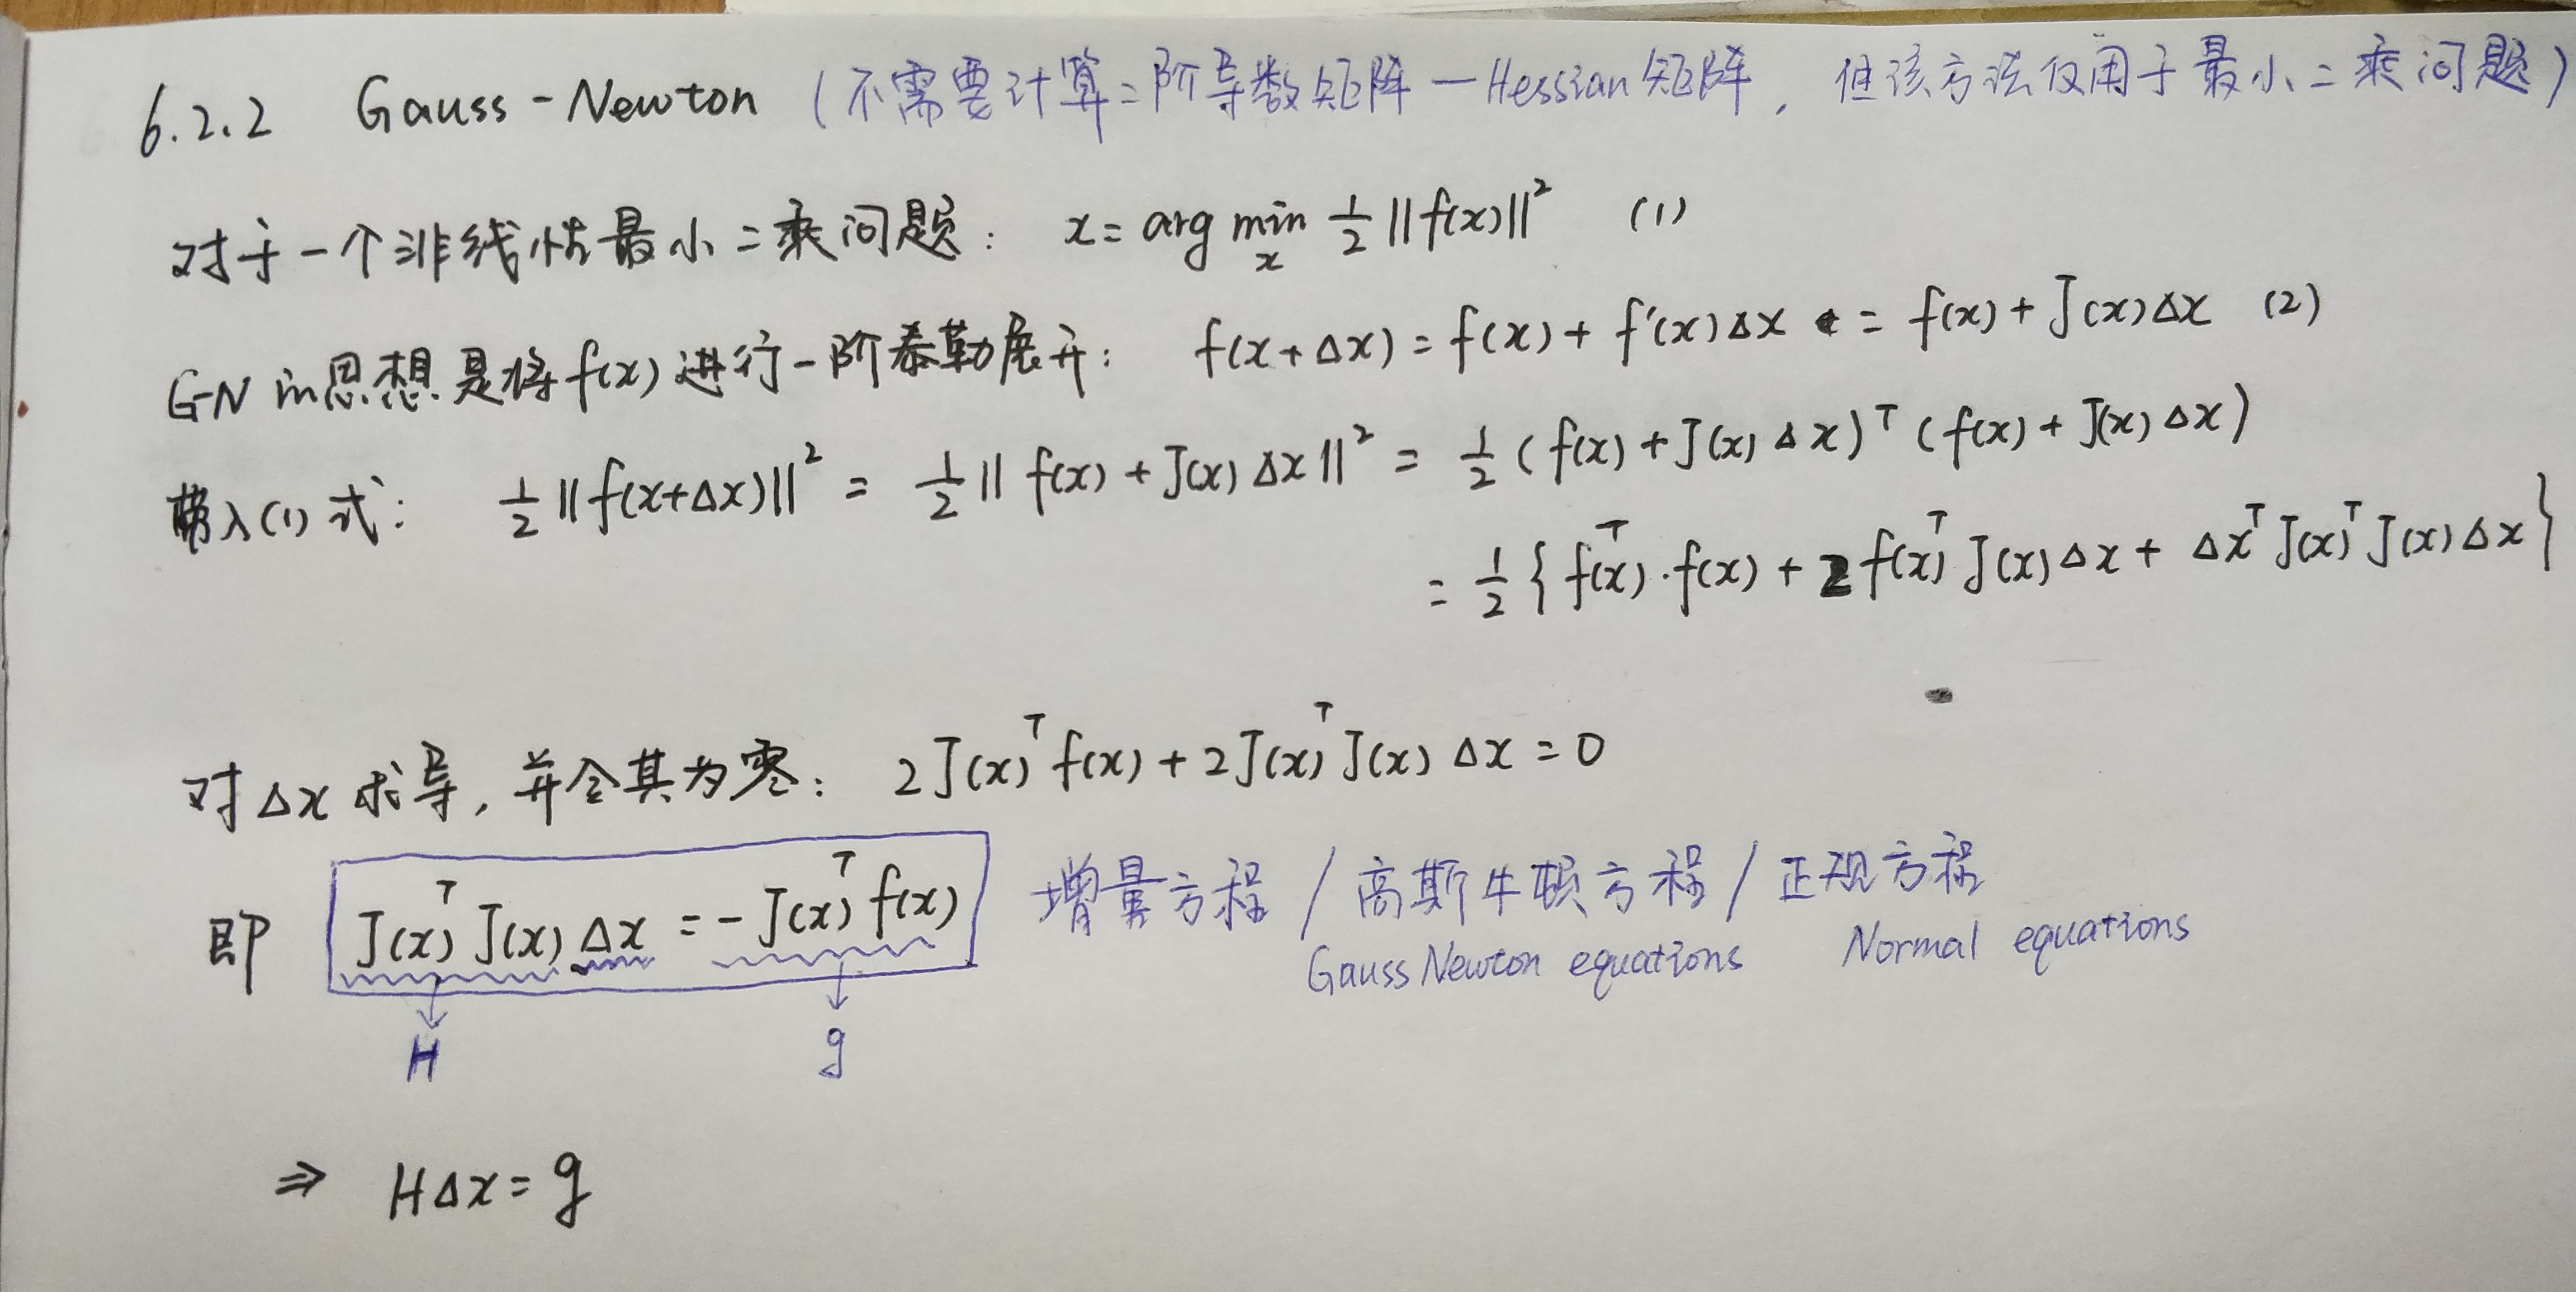 6.2.2 Gauss-Newton (不需要计算二阶导数矩阵—Hessian矩阵, 但该方法仅用于最小二乘问题)
对于一个非线性最小二乘问题: x = arg min_x 1/2 ||f(x)||² (1)
GN的思想是将f(x)进行一阶泰勒展开: f(x+Δx) = f(x) + f'(x)Δx = f(x) + J(x)Δx (2)
带入(1)式: 1/2 ||f(x+Δx)||² = 1/2 || f(x) + J(x) Δx ||² = 1/2 (f(x) + J(x) Δx)ᵀ (f(x) + J(x) Δx)
= 1/2 { f(x)ᵀ·f(x) + 2 f(x)ᵀ J(x) Δx + Δxᵀ J(x)ᵀ J(x) Δx }
对Δx求导, 并令其为零: 2J(x)ᵀ f(x) + 2J(x)ᵀ J(x) Δx = 0
即 J(x)ᵀ J(x) Δx = -J(x)ᵀ f(x) 增量方程 / 高斯牛顿方程 / 正规方程
Gauss Newton equations Normal equations
H g
⇒ HΔx = g